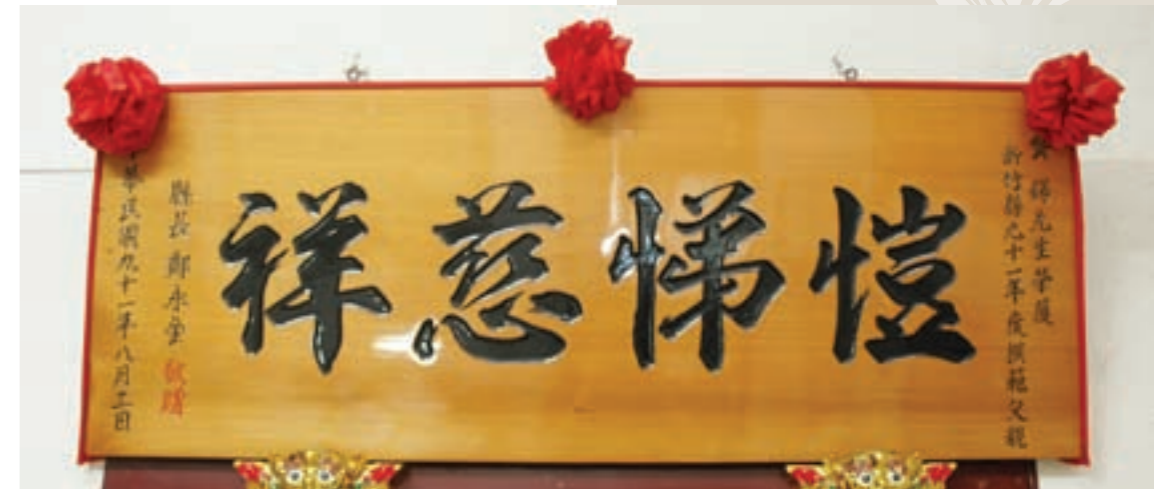 錦先生榮獲
新竹縣九十一年度模範父親
愷悌慈祥
縣長 鄭永金 敬贈
華民國九十一年八月二日